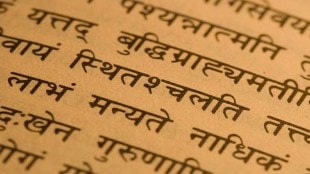 गसेवय
पश्यन्नात्मनि तु
यत्तद् बुद्धिग्राह्यमती
वायं स्थितश्चलति तत्त्
लाभं मन्यते नाधिकं
दुःखेन गुरुणापि